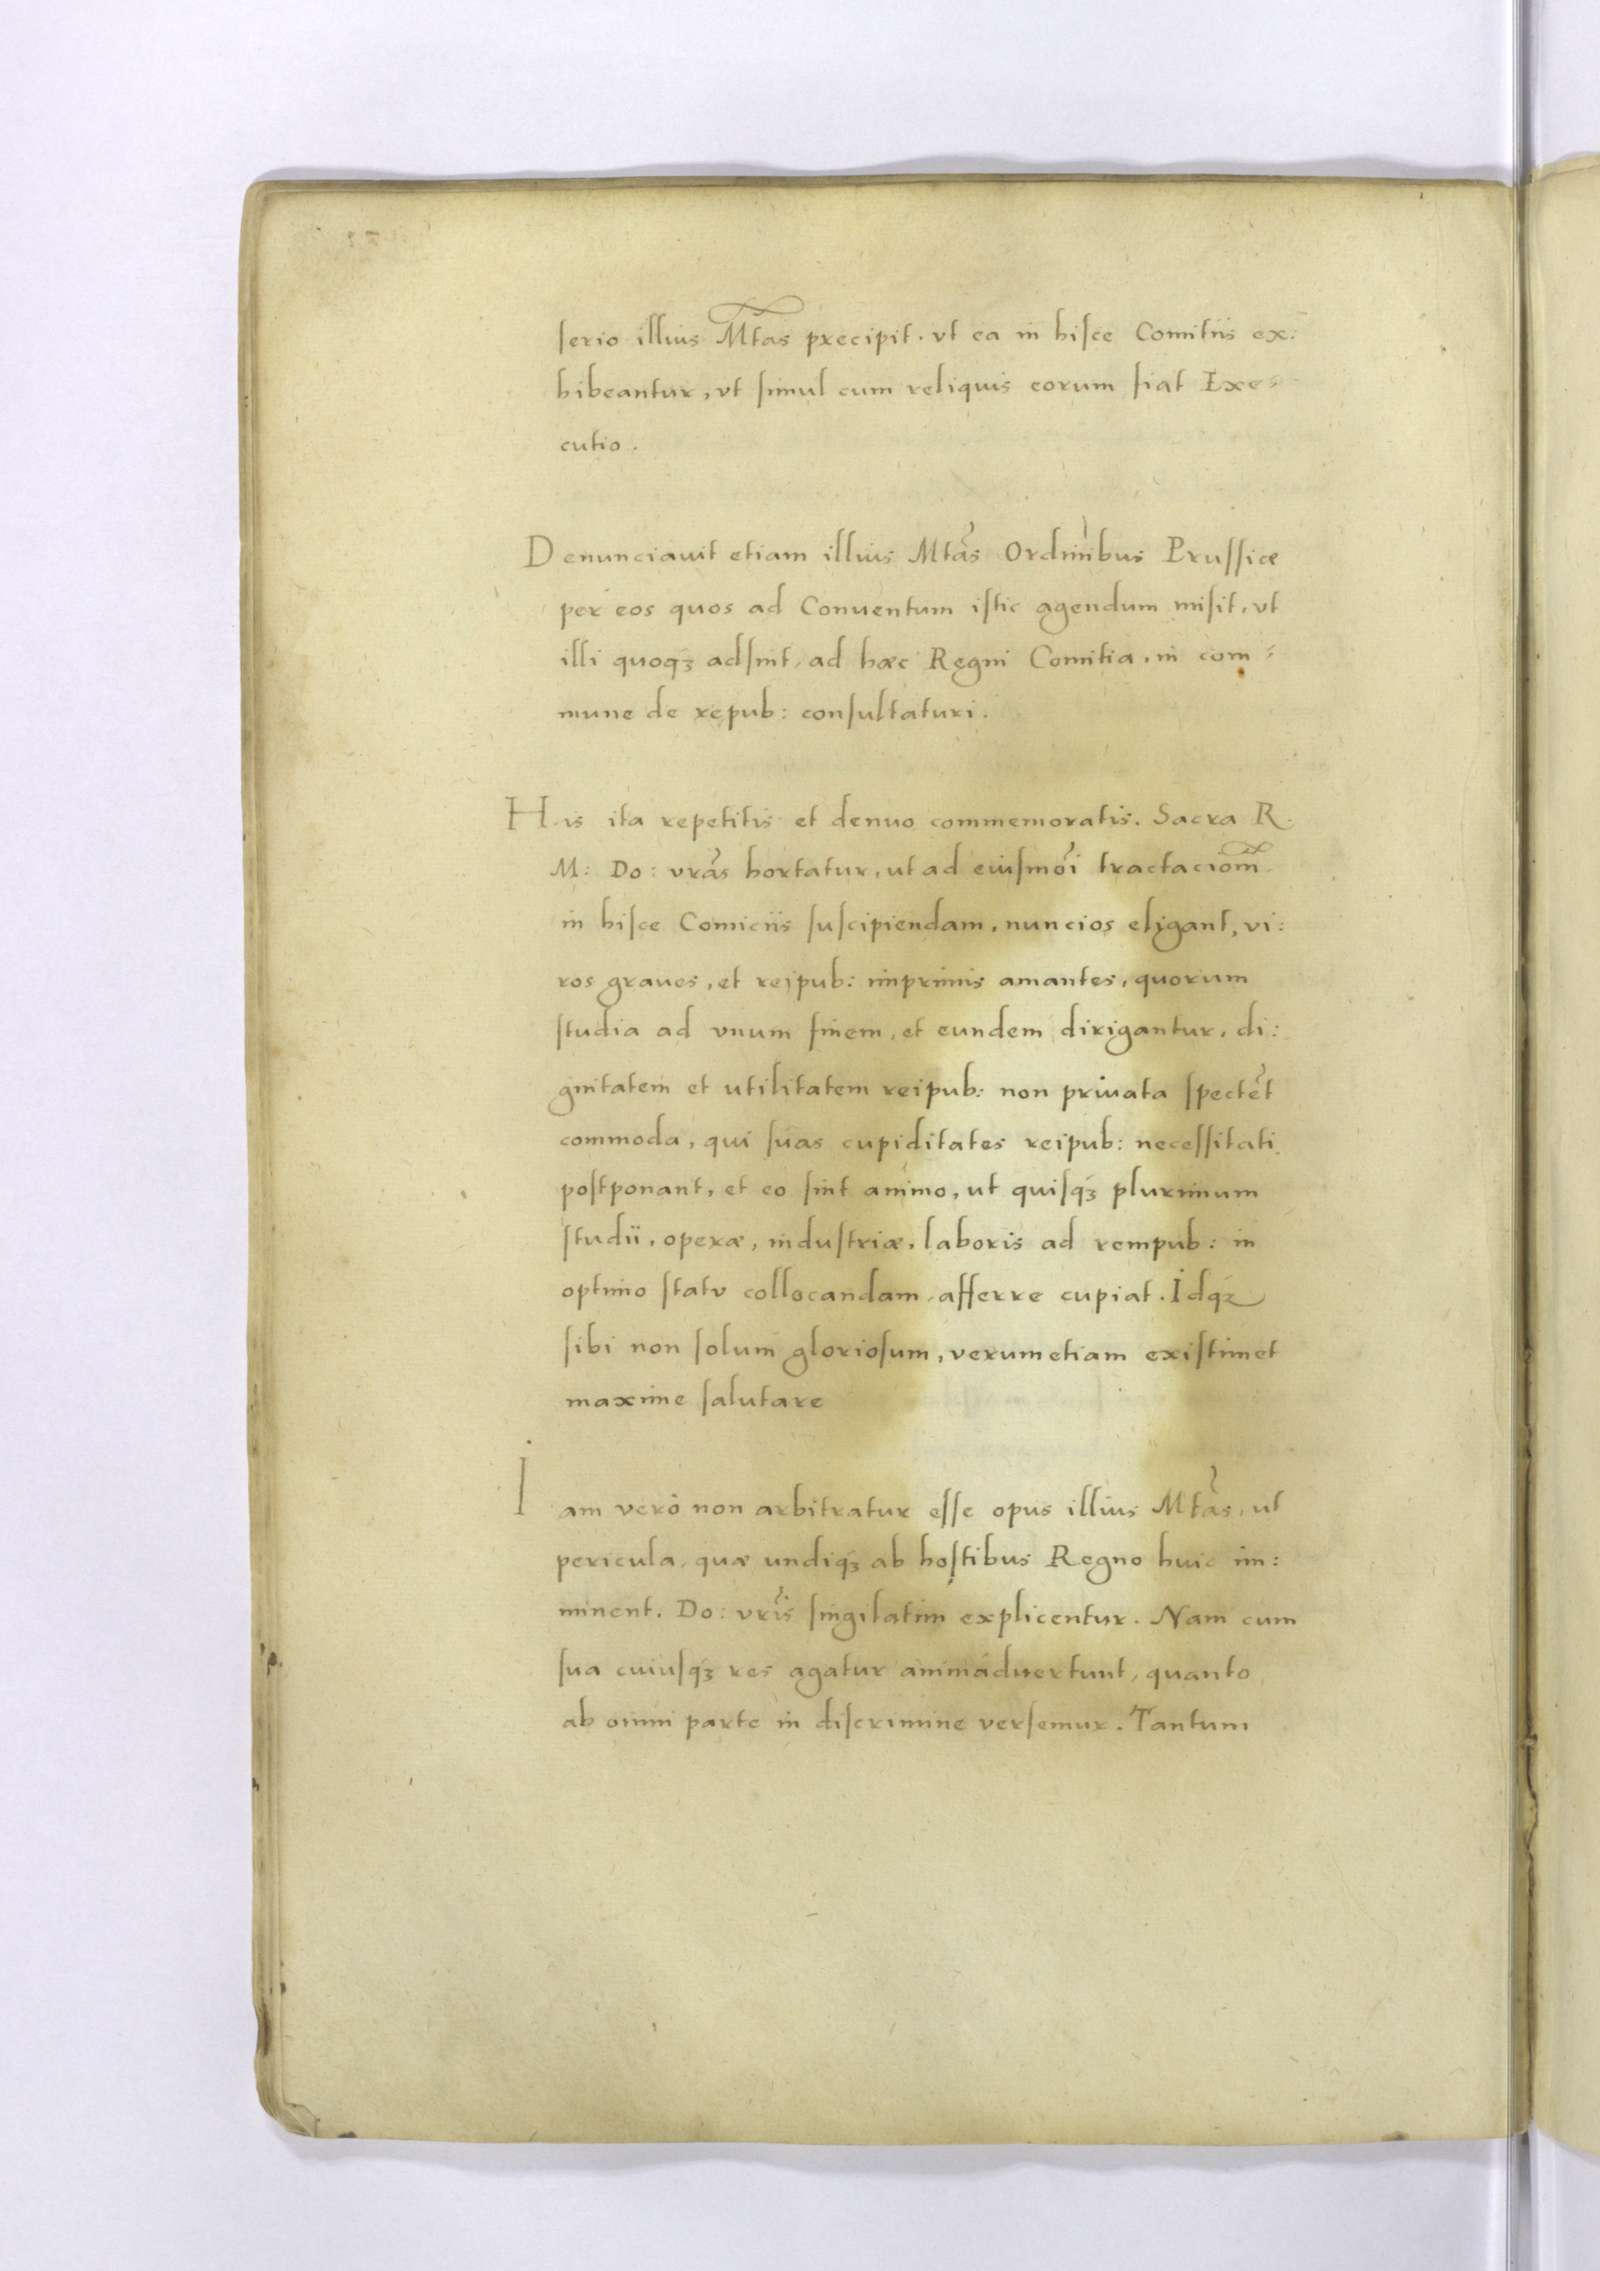 serio illius Mtas precipit. vt ea in hisce Comitiis ex:
hibeantur, vt simul cum reliquis eorum fiat Exe=
cutio.
Denunciavit etiam illius Mtas Ordinibus Prussiæ
per eos quos ad Conuentum istic agendum misit, vt
illi quoqȝ adsint, ad hæc Regni Comitia, in com=
mune de repub: consultaturi.
His ita repetitis et denuo commemoratis. Sacra R.
M: Do: vras hortatur, ut ad eiusmoi tractaciom
in hisce Comiciis suscipiendam, nuncios eligant, vi:
ros graues, et reipub: imprimis amantes, quorum
studia ad vnum finem, et eundem dirigantur, di:
gnitatem et utilitatem reipub: non priuata spectet
commoda, qui suas cupiditates reipub: necessitati
postponant, et eo sint animo, ut quisqȝ plurimum
studii, operæ, industriæ, laboris ad rempub: in
optimo statv collocandam, afferre cupiat. Idqȝ
sibi non solum gloriosum, verumetiam existimet
maxime salutare
Iam verò non arbitratur esse opus illius Mtas, ut
pericula, quæ undiqȝ ab hostibus Regno huic im:
minent. Do: vris singilatim explicentur. Nam cum
sua cuiusqȝ res agatur animaduertunt, quanto
ab omni parte in discrimine versemur. Tantum